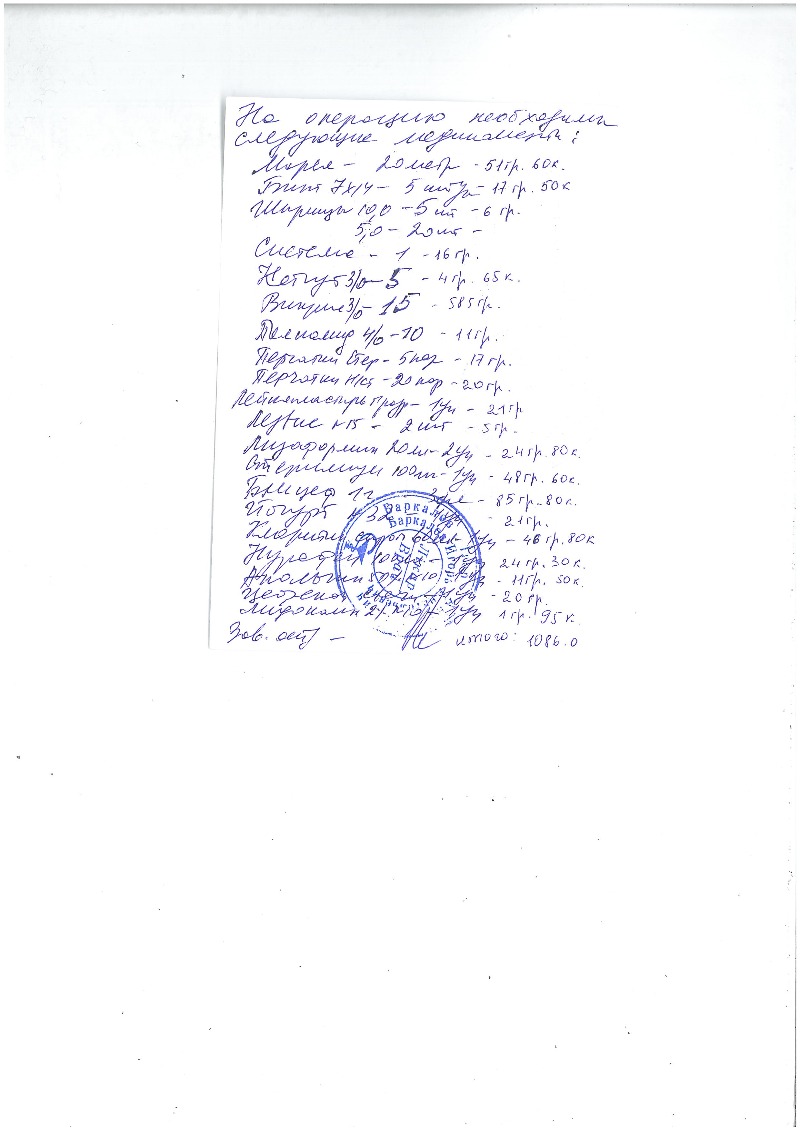 На операцию необходимы
следующие медикаменты:
Марля - 20 метр - 51 гр. 60 к.
Бинт 7х14 - 5 штук - 17 гр. 50 к
Шприцы 10,0 - 5 шт - 6 гр.
5,0 - 20 шт -
Система - 1 - 16 гр.
Кетгут 3/0 - 5 - 4 гр. 65 к.
Викрил 3/0 - 15 - 585 гр.
4/0 - 10 - 11 гр.
Перчатки Стер - 5 пар - 17 гр.
Перчатки н/ст - 20 пар - 20 гр.
Лейкопластырь - 1 уп - 21 гр
Лезвие №15 - 2 шт - 5 гр.
Лизоформин 20 мл - 2 уп - 24 гр. 80 к.
100 - 1 уп - 48 гр. 60 к.
1 г - 85 гр. 80 к.
Йогурт №32 - 21 гр.
Кларитин сироп 60 мл 1 уп - 46 гр. 80 к
24 гр. 30 к.
- 11 гр. 50 к.
- 20 гр.
Лидокаин 2% №10 - 1 уп 1 гр. 95 к.
Зав. отд - итого: 1086.0
Баркалов
Лікар
Врач